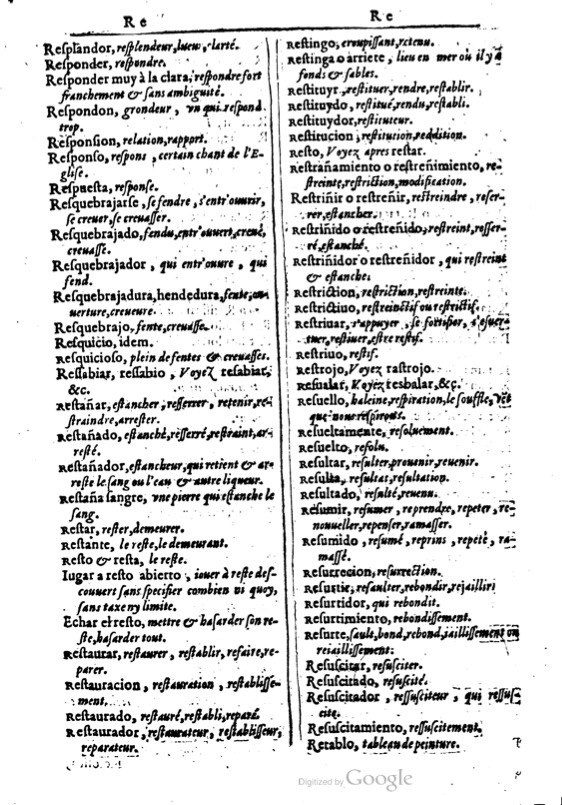 Re
Resplandor, resplendeur, lueur, clarté.
Responder, respondre.
Responder muy à la clara, respondre fort
franchement & sans ambiguité.
Respondon, grondeur, vn qui respond
trop.
Responsion, relation, rapport.
Responso, respons, certain chant de l'E-
glise.
Respuesta, response.
Resquebrajarse, se fendre, s'entr'ouurir,
se creuer, se creuasser.
Resquebrajado, fendu, entr'ouuert, creué,
creuassé.
Resquebrajador, qui entr'ouure, qui
fend.
Resquebrajadura, hendedura, fente, ou-
uerture, creueure.
Resquebrajo, fente, creuasse.
Resquicio, idem.
Resquicioso, plein de fentes & creuasses.
Ressabiar, ressabio, Voyez resabiar,
&c.
Restañar, estancher, resserrer, retenir, re-
straindre, arrester.
Restañado, estanché, resserré, restraint, ar-
resté.
Restañador, estancheur, qui retient & ar-
reste le sang ou l'eau & autre liqueur.
Restaña sangre, vne pierre qui estanche le
sang.
Restar, rester, demeurer.
Restante, le reste, le demeurant.
Resto & resta, le reste.
Iugar a resto abierto, iouer à reste des-
couuert sans specifier combien ni quoy,
sans taxe ny limite.
Echar el resto, mettre & hasarder son re-
ste, hasarder tout.
Restaurar, restaurer, restablir, refaire, re-
parer.
Restauracion, restauration, restablisse-
ment.
Restaurado, restauré, restabli, reparé.
Restaurador, restaurateur, restablisseur,
reparateur.
Re
Restingo, croupissant, retenu.
Restinga o arriete, lieu en mer où il y a
fonds & sables.
Restituyr, restituer, rendre, restablir.
Restituydo, restitué, rendu, restabli.
Restituydor, restituteur.
Restitucion, restitution, reddition.
Resto, Voyez apres restar.
Restrañamiento o restreñimiento, re-
streinte, restriction, modification.
Restriñir o restreñir, restreindre, reser-
rer, estancher.
Restriñido o restreñido, restreint, resser-
ré, estanché.
Restriñidor o restreñidor, qui restreint
& estanche.
Restriction, restriction, restreinte.
Restrictiuo, restreinctif ou restrictif.
Restriuar, s'appuyer, se fortifier, s'esuer-
tuer, restiuer, estre restif.
Restriuo, restif.
Restrojo, Voyez rastrojo.
Resualar, Voyez resbalar, &c.
Resuello, haleine, respiration, le souffle, vet
que nous respirons.
Resueltamente, resoluement.
Resuelto, resolu.
Resultar, resulter, prouenir, reuenir.
Resulta, resultat, resultation.
Resultado, resulté, reuenu.
Resumir, resumer, reprendre, repeter, re-
nouueller, repenser, ramasser.
Resumido, resumé, reprins, repeté, ra-
massé.
Resurrecion, resurrection.
Resurtir, resaulter, rebondir, rejaillir
Resurtidor, qui rebondit.
Resurtimiento, rebondissement.
Resurte, sault, bond, rebond, iaillissement ou
reiaillissement.
Resuscitar, resusciter.
Resuscitado, resuscité.
Resuscitador, ressusciteur, qui ressus-
cite.
Resuscitamiento, ressuscitement.
Retablo, tableau de peinture.
Digitized by Google